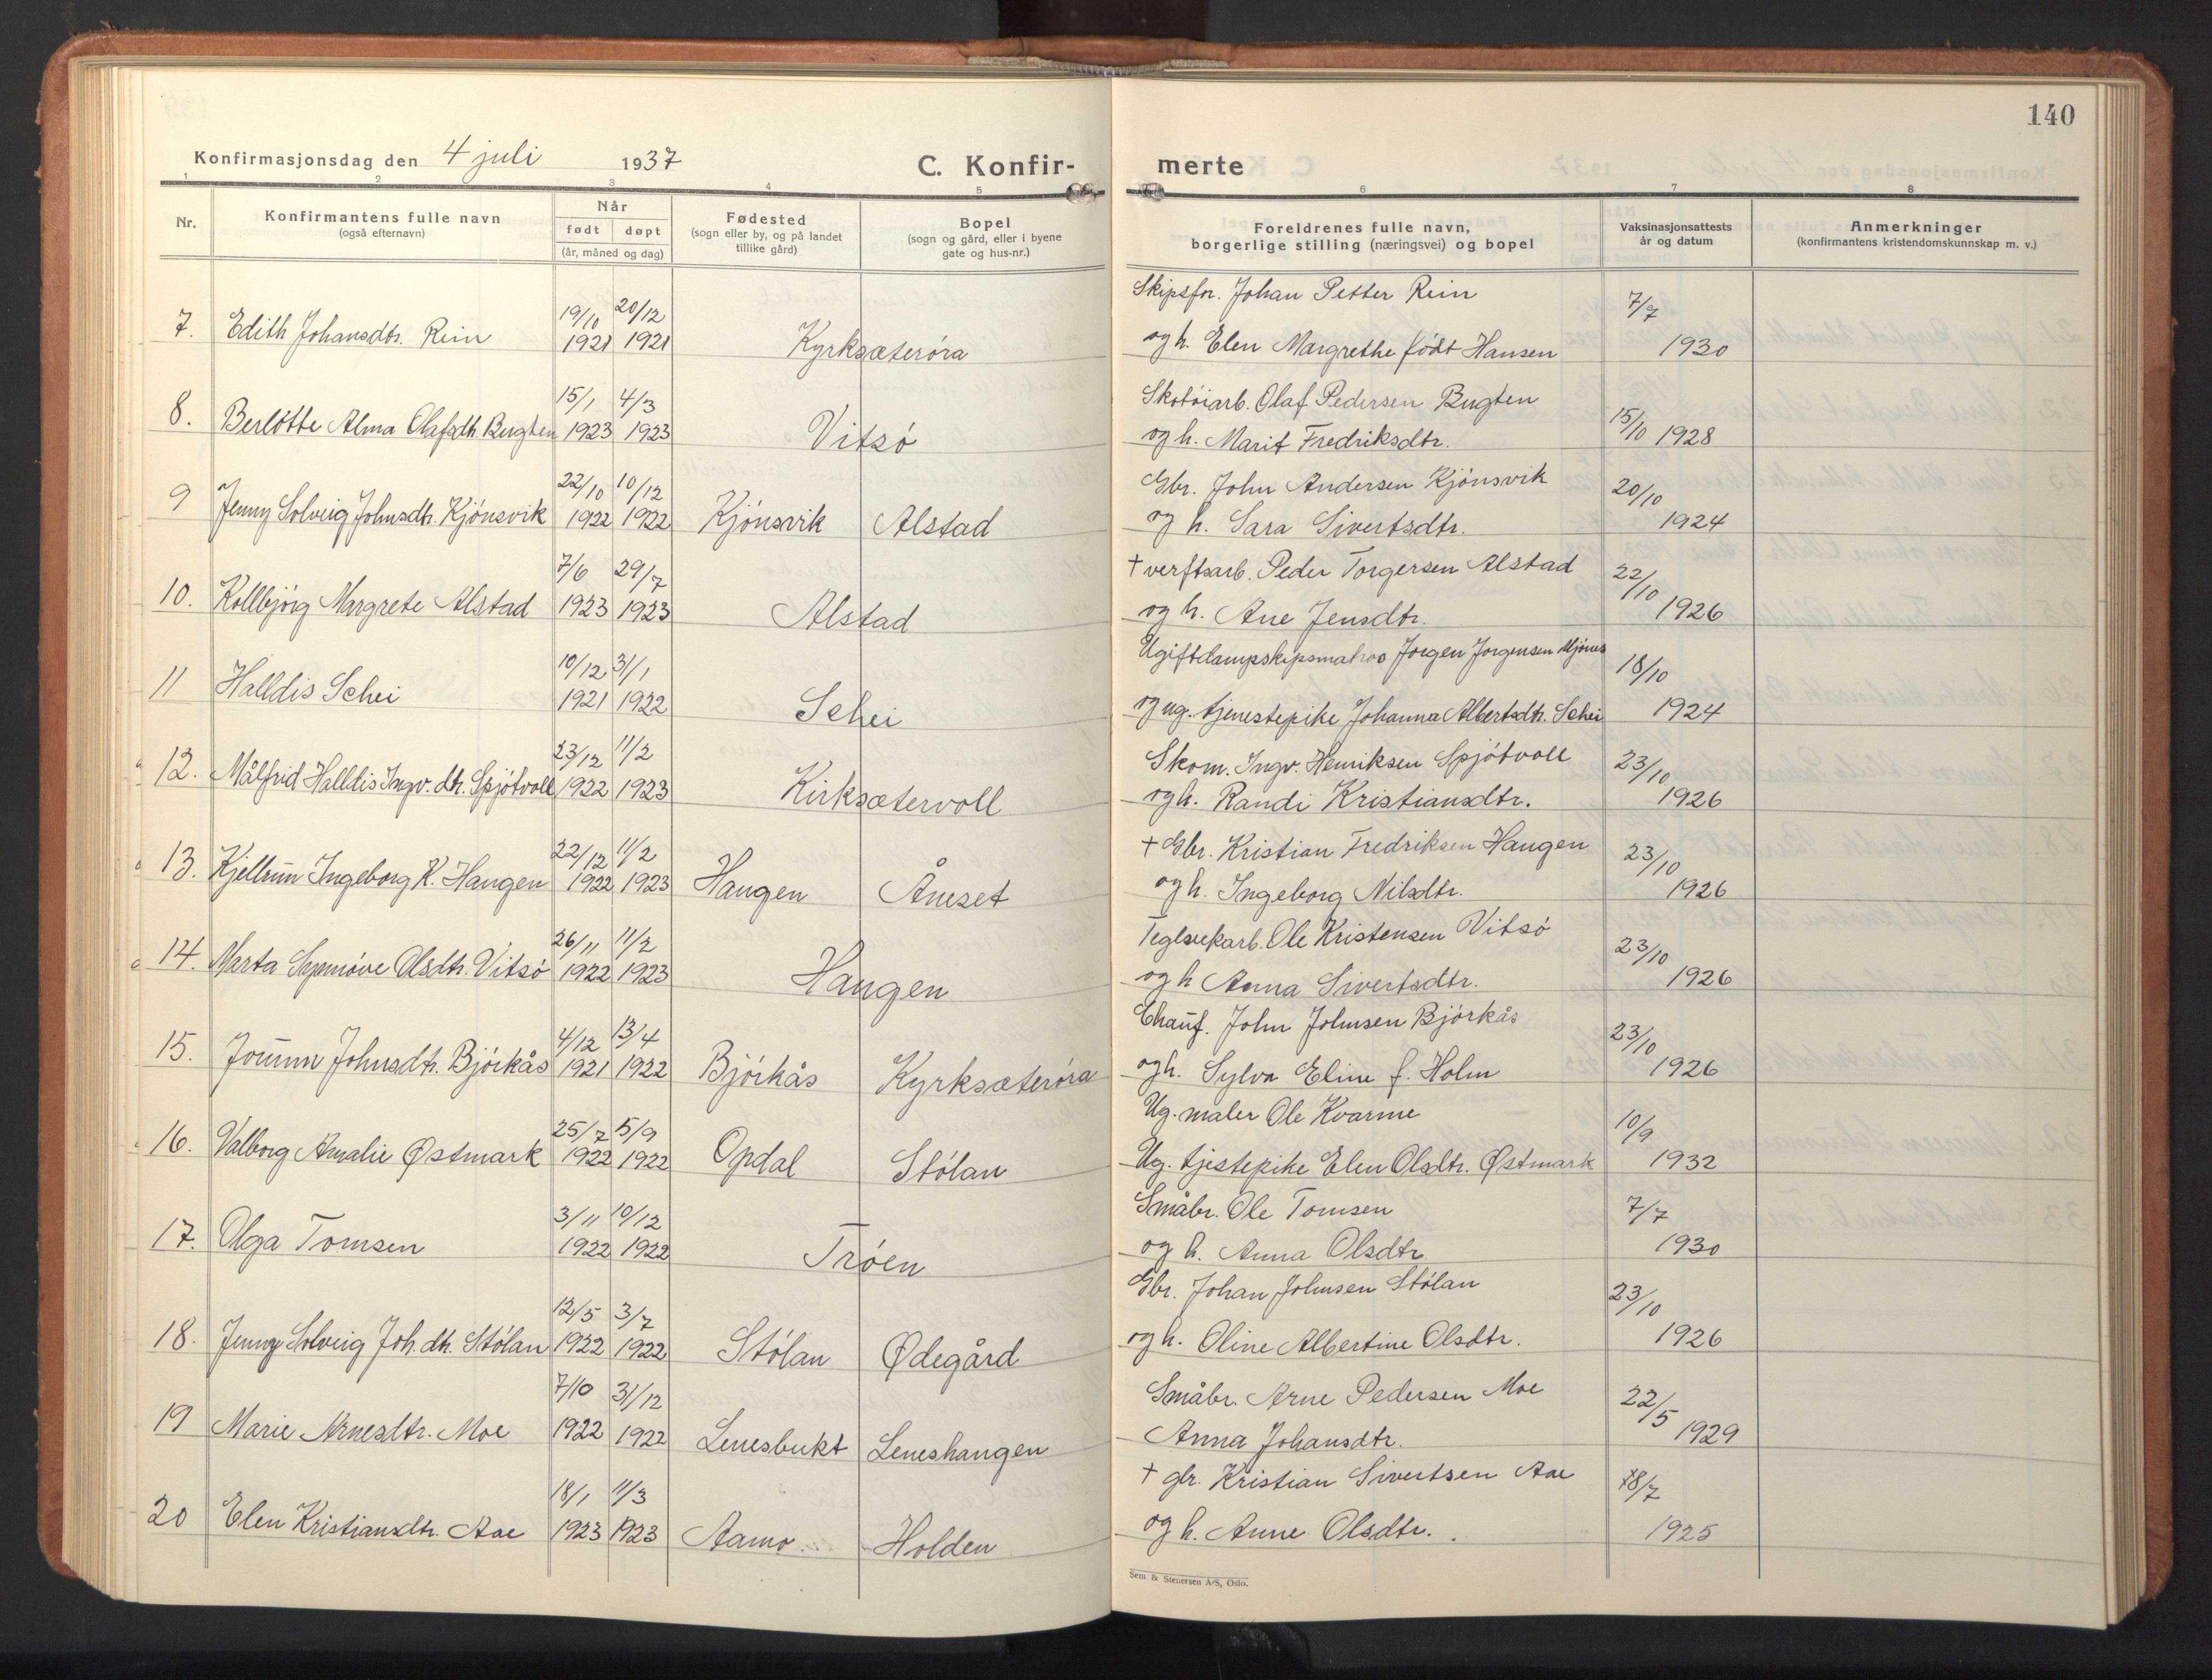 140
Konfirmasjonsdag den 4 juli 1937
C. Konfir- merte
1 2 3 4 5 6 7 8
Nr.
Konfirmantens fulle navn
(også efternavn)
Når
født døpt
(år, måned og dag)
Fødested
(sogn eller by, og på landet
tillike gård)
Bopel
(sogn og gård, eller i byene
gate og hus-nr.)
Foreldrenes fulle navn,
borgerlige stilling (næringsvei) og bopel
Vaksinasjonsattests
år og datum
Anmerkninger
(konfirmantens kristendomskunnskap m. v.)
19/10 20/12 Skipsfør. Johan Petter Rein 7/7
7. Edith Johansdtr. Rein 1921 1921 Kyrksæterøra og h. Elen Margrethe født Hansen 1930
15/1 4/3 Skotøiarb. Olaf Pedersen Bugten 15/10
8. Berlötte Alma Olafsdtr. Bugten 1923 1923 Vitsø og h. Marit Fredriksdtr. 1928
22/10 10/12 Gbr. John Andersen Kjönsvik 20/10
9 Jenny Solveig Johnsdtr. Kjönsvik 1922 1922 Kjönsvik Alstad og h. Sara Sivertsdtr. 1924
7/6 29/7 † verftsarb. Peder Torgersen Alstad 22/10
10. Kollbjörg Margrete Alstad 1923 1923 Alstad og h. Ane Jensdtr. 1926
10/12 31/1 Ugift dampskipsmatros Jørgen Jørgensen Mjönes 18/10
11 Halldis Schei 1921 1922 Schei og ug. tjenestepike Johanna Albertsdtr. Schei 1924
23/12 11/2 Skom. Ingv. Henriksen Spjötvoll 23/10
12. Målfrid Halldis Ingv. dtr. Spjötvoll 1922 1923 Kirksætervoll og h. Randi Kristiansdtr. 1926
22/12 11/2 † Gbr. Kristian Fredriksen Haugen 23/10
13. Kjellrun Ingeborg K. Haugen 1922 1923 Haugen Åneset og h. Ingeborg Nilsdtr. 1926
26/11 11/2 Teglverkarb. Ole Kristensen Vitsö 23/10
14. Marta Synnöve Olsdtr. Vitsö 1922 1923 Haugen og h Anna Sivertsdtr. 1926
4/12 13/4 Chauf. John Johnsen Björkås 23/10
15. Jorunn Johnsdtr. Björkås 1921 1922 Björkås Kyrksæteröra og h. Sylva Eline f. Holm 1926
25/7 15/9 Ug. maler Ole Kvarme 10/9
16. Valborg Amalie Østmark 1922 1922 Opdal Stölan Ug. tjestepike Elen Olsdtr. Østmark 1932
3/11 10/12 Småbr. Ole Tomsen 7/7
17. Olga Tomsen 1922 1922 Tröen og h. Anna Olsdtr. 1930
12/5 3/7 Gbr. Johan Johnsen Stölan 23/10
18. Jenny Solveig Joh. dtr. Stölan 1922 1922 Stölan Ødegård og h. Oline Albertine Olsdtr. 1926
7/10 31/12 Småbr. Arne Pedersen Moe 22/5
19 Marie Arnesdtr. Moe 1922 1922 Lenesbukt Leneshaugen Anna Johansdtr. 1929
18/1 11/3 † gbr. Kristian Sivertsen Aae 18/7
20 Elen Kristiansdtr. Aae 1923 1923 Aamo Holden og h. Anne Olsdtr. 1925
Sem & Stenersen A/S, Oslo.